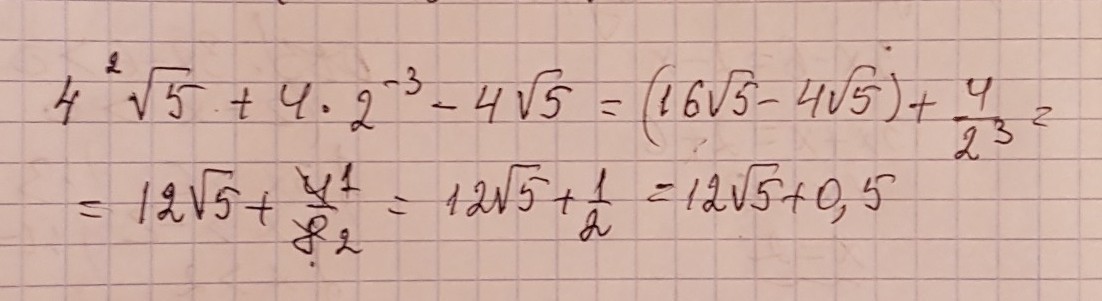 4²√5 + 4 · 2⁻³ - 4√5 = (16√5 - 4√5) + 4/2³ =
= 12√5 + 4 1/8 2 = 12√5 + 1/2 = 12√5 + 0,5